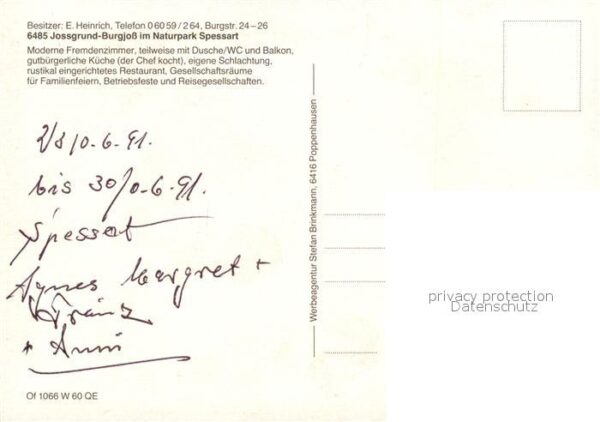 Besitzer: E. Heinrich, Telefon 0 60 59 / 2 64, Burgstr. 24 – 26
6485 Jossgrund-Burgjoß im Naturpark Spessart
Moderne Fremdenzimmer, teilweise mit Dusche/WC und Balkon,
gutbürgerliche Küche (der Chef kocht), eigene Schlachtung,
rustikal eingerichtetes Restaurant, Gesellschaftsräume
für Familienfeiern, Betriebsfeste und Reisegesellschaften.
bis 30/0-6-91.
Spessat
Agnes Margret +
Franz
+ Anni
Of 1066 W 60 QE
Werbeagentur Stefan Brinkmann, 6416 Poppenhausen
privacy protection
Datenschutz